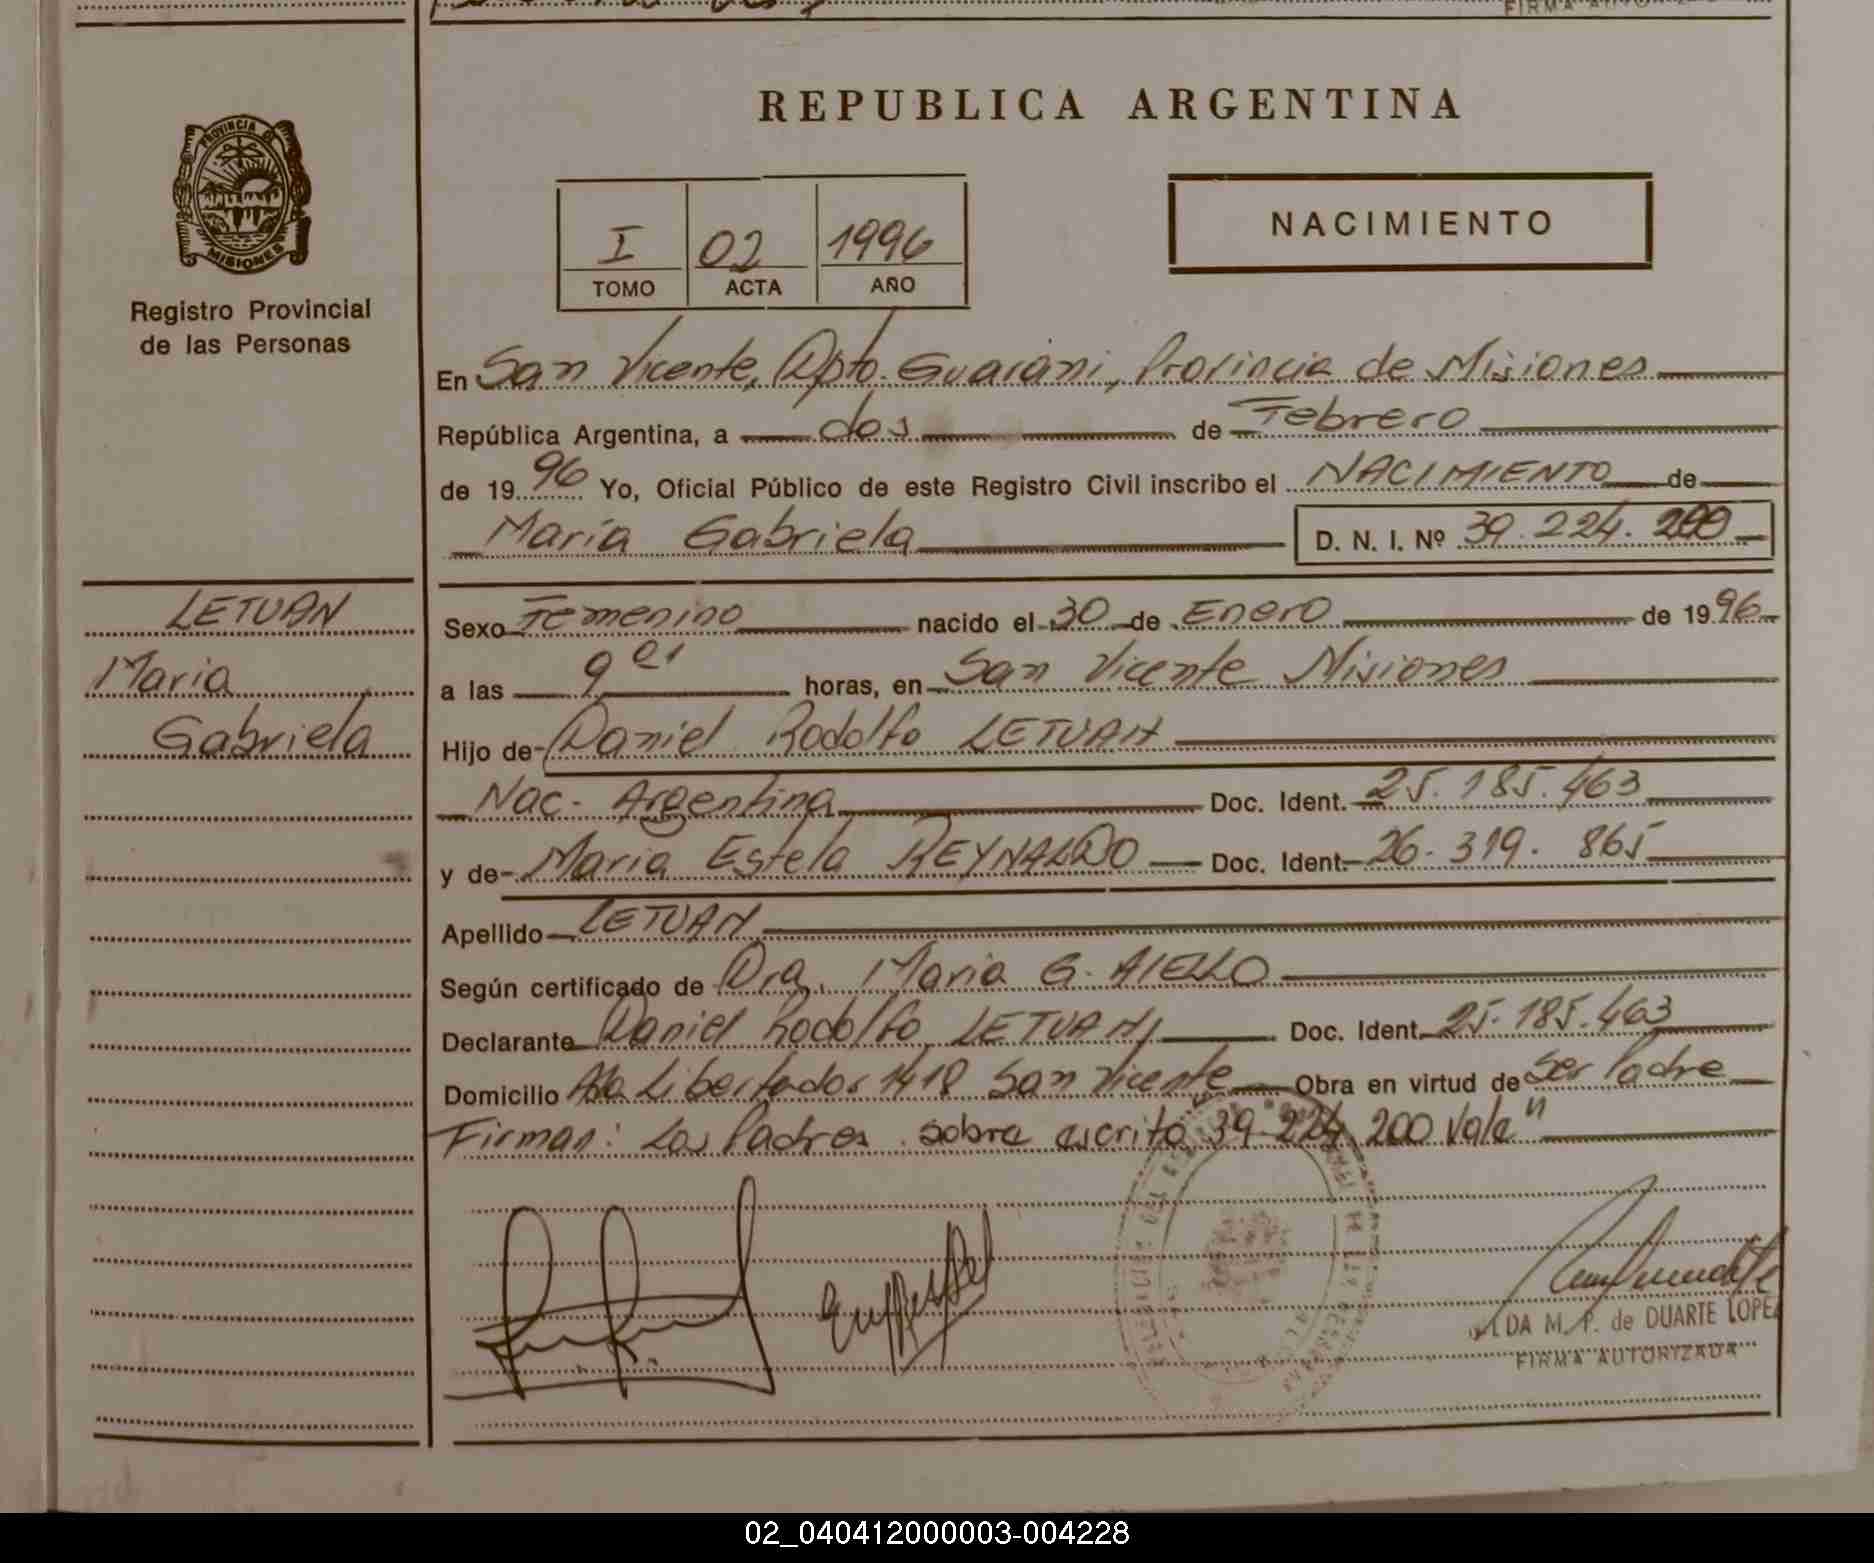 REPUBLICA ARGENTINA
PROVINCIA DE
MISIONES
Registro Provincial
de las Personas
I 02 1996
TOMO ACTA AÑO
NACIMIENTO
En San Vicente, Dpto. Guarani, Provincia de Misiones
República Argentina, a dos de Febrero
de 1996 Yo, Oficial Público de este Registro Civil inscribo el NACIMIENTO de
María Gabriela D. N. I. Nº 39.224.200
LETUAN
Maria
Gabriela
Sexo Femenino nacido el 30 de Enero de 1996
a las 9 horas, en San Vicente Misiones
Hijo de Daniel Rodolfo LETUAN
Nac. Argentina Doc. Ident. 25.185.463
y de Maria Estela REYNALDO Doc. Ident. 26.319.865
Apellido LETUAN
Según certificado de Dra. Maria G. AIELLO
Declarante Daniel Rodolfo LETUAN, Doc. Ident. 25.185.463
Domicilio Libertador 1418 San Vicente Obra en virtud de Ser Padre
Firman: Los Padres. sobre escrito 39.224.200 Vale"
M. P. de DUARTE LOPEZ
FIRMA AUTORIZADA
02_040412000003-004228